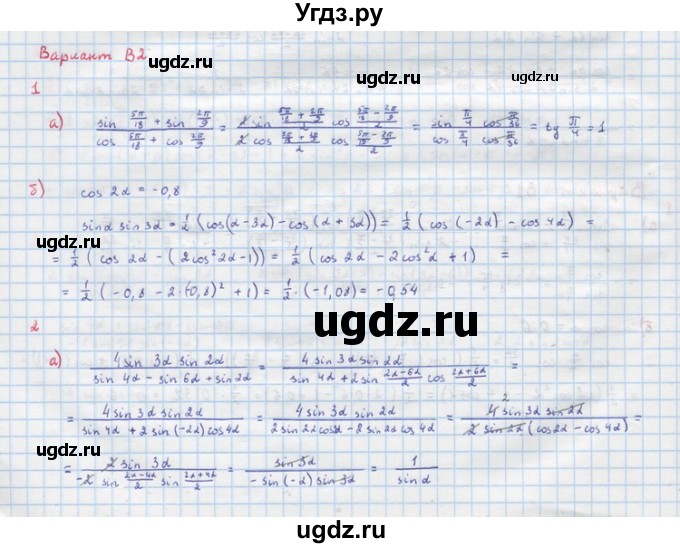 Угдз.ру
Вариант В2
ugdz.ru ugdz.ru
1
а) (sin 5π/18 + sin 2π/9)/(cos 5π/18 + cos 2π/9) = (2 sin (5π/18 + 2π/9)/2 cos (5π/18 − 2π/9)/2)/(2 cos (5π/18 + 2π/9)/2 cos (5π/18 − 2π/9)/2) = (sin π/4 cos π/36)/(cos π/4 cos π/36) = tg π/4 = 1
ugdz.ru ugdz.ru
б) cos 2α = −0,8
sinα sin 3α = 1/2 (cos(α − 3α) − cos (α + 3α)) = 1/2 (cos (−2α) − cos 4α) =
ugdz.ru ugdz.ru
= 1/2 (cos 2α − (2cos²2α − 1)) = 1/2 (cos 2α − 2cos²2α + 1) =
= 1/2 (−0,8 − 2·(0,8)² + 1) = 1/2 · (−1,08) = −0,54
2
ugdz.ru
ugdz.ru ugdz.ru
а) (4 sin 3α sin 2α)/(sin 4α − sin 6α + sin 2α) = (4 sin 3α sin 2α)/(sin 4α + 2 sin (2α − 6α)/2 cos (2α + 6α)/2) =
= (4 sin 3α sin 2α)/(sin 4α + 2 sin (−2α) cos 4α) = (4 sin 3α sin 2α)/(2 sin 2α cos 2α − 2 sin 2α cos 4α) = (4 2 sin 3α sin 2α)/(2 sin 2α (cos 2α − cos 4α)) =
ugdz.ru ugdz.ru
= (2 sin 3α)/(−2 sin (2α − 4α)/2 sin (2α + 4α)/2) = (sin 3α)/(−sin (−α) sin 3α) = 1/(sin α)
ugdz.ru ugdz.ru